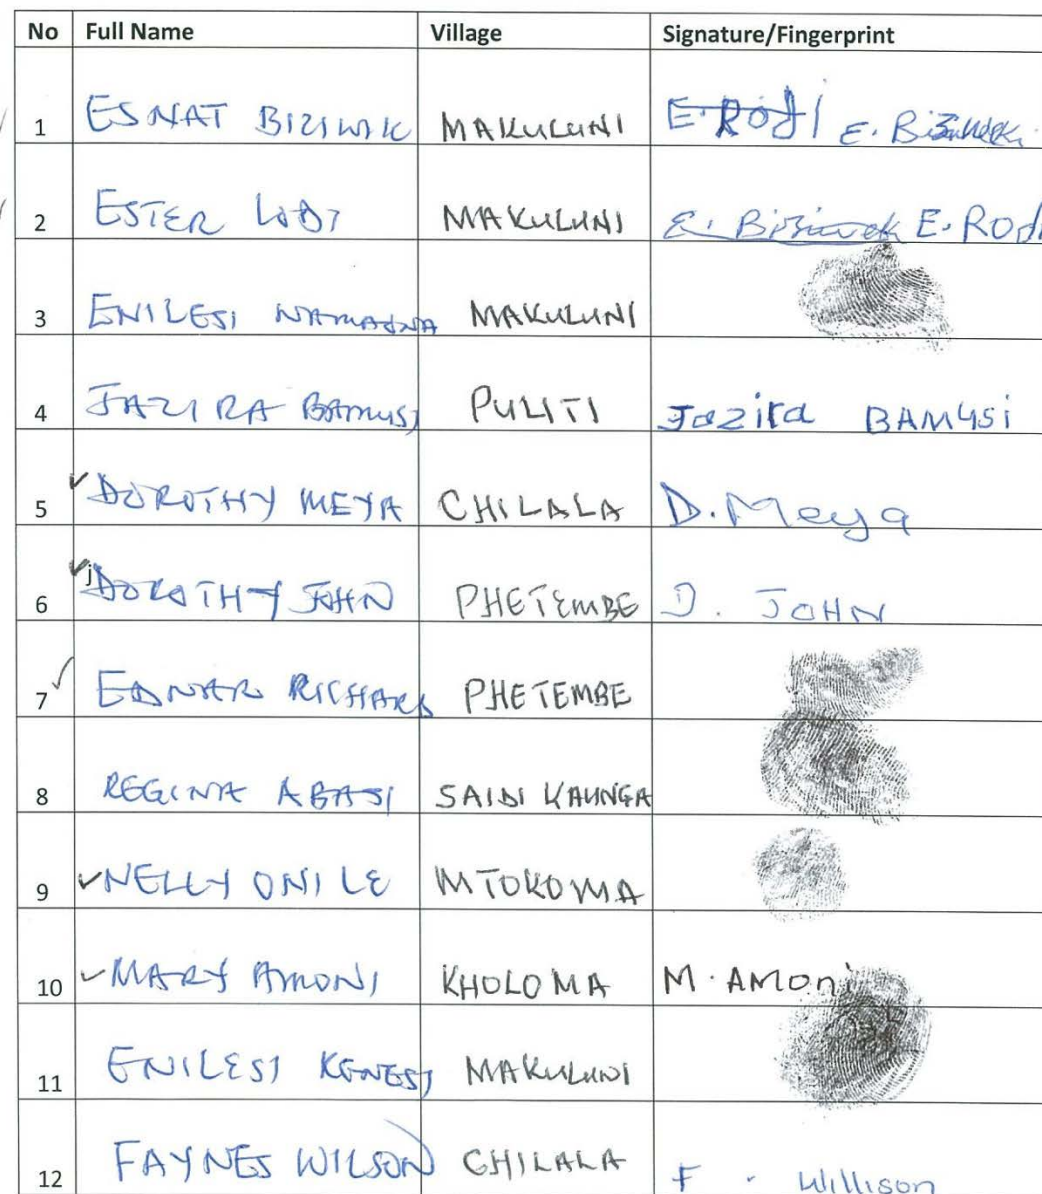 No Full Name Village Signature/Fingerprint
1 ESNAT BIZIWIK MAKULUNI E. RODI E. Biziweki
2 ESTER LODI MAKULUNI E. Biziweck E. Rodi
3 ENILESI MAKULUNI
4 JAZIRA BAMUSI PULITI Jazira BAMUSi
5 DOROTHY MEYA CHILALA D. Meya
6 j DOROTHY JOHN PHETEMBE D. JOHN
7 EDNAR RICHARD PHETEMBE
8 REGINA ABASI SAIDI KAUNGA
9 NELLY ONILE MTOKOMA
10 MARY AMONI KHOLOMA M. AMOni
11 ENILESI KENESI MAKULUNI
12 FAYNES WILSON CHILALA F. Willison